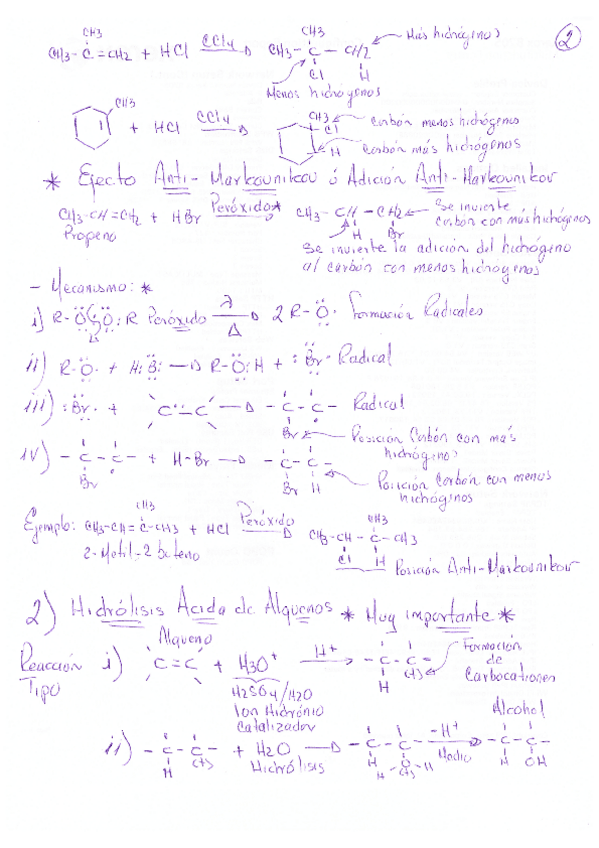 2
CH3 CH3
CH3-C=CH2 + HCl CCl4 → CH3-C-CH2 Más hidrógenos
Cl H
Menos hidrógenos
CH3 + HCl CCl4 → CH3 Carbón menos hidrógenos
Cl
H Carbón más hidrógenos
* Efecto Anti-Markovnikov ó Adición Anti-Markovnikov
CH3-CH=CH2 + HBr Peróxido → CH3-CH-CH2 Se invierte carbón con más hidrógenos
Propeno H Br
Se invierte la adición del hidrógeno
al carbón con menos hidrógenos
- Mecanismo: *
i) R-O O:R Peróxido λ Δ → 2 R-O· Formación Radicales
ii) R-O· + H:Br: → R-O:H + :Br· Radical
iii) :Br· + C=C → -C-C- Radical
Br Posición Carbón con más
hidrógenos
iv) -C-C- + H-Br → -C-C-
Br Br H Posición Carbón con menos
hidrógenos
CH3 CH3
Ejemplo: CH3-CH=C-CH3 + HCl Peróxido → CH3-CH-C-CH3
2-Metil-2 buteno Cl H Posición Anti-Markovnikov
2) Hidrólisis Acida de Alquenos * Muy importante *
Alqueno
Reacción Tipo i) C=C + H3O+ H+ → -C-C- Formación de Carbocationes
H (+)
H2SO4/H2O
Ion Hidrónio
Catalizador
Alcohol
ii) -C-C- + H2O → -C-C- -H+ → -C-C-
H (+) Hidrólisis H O Medio H OH
H-(+)-H